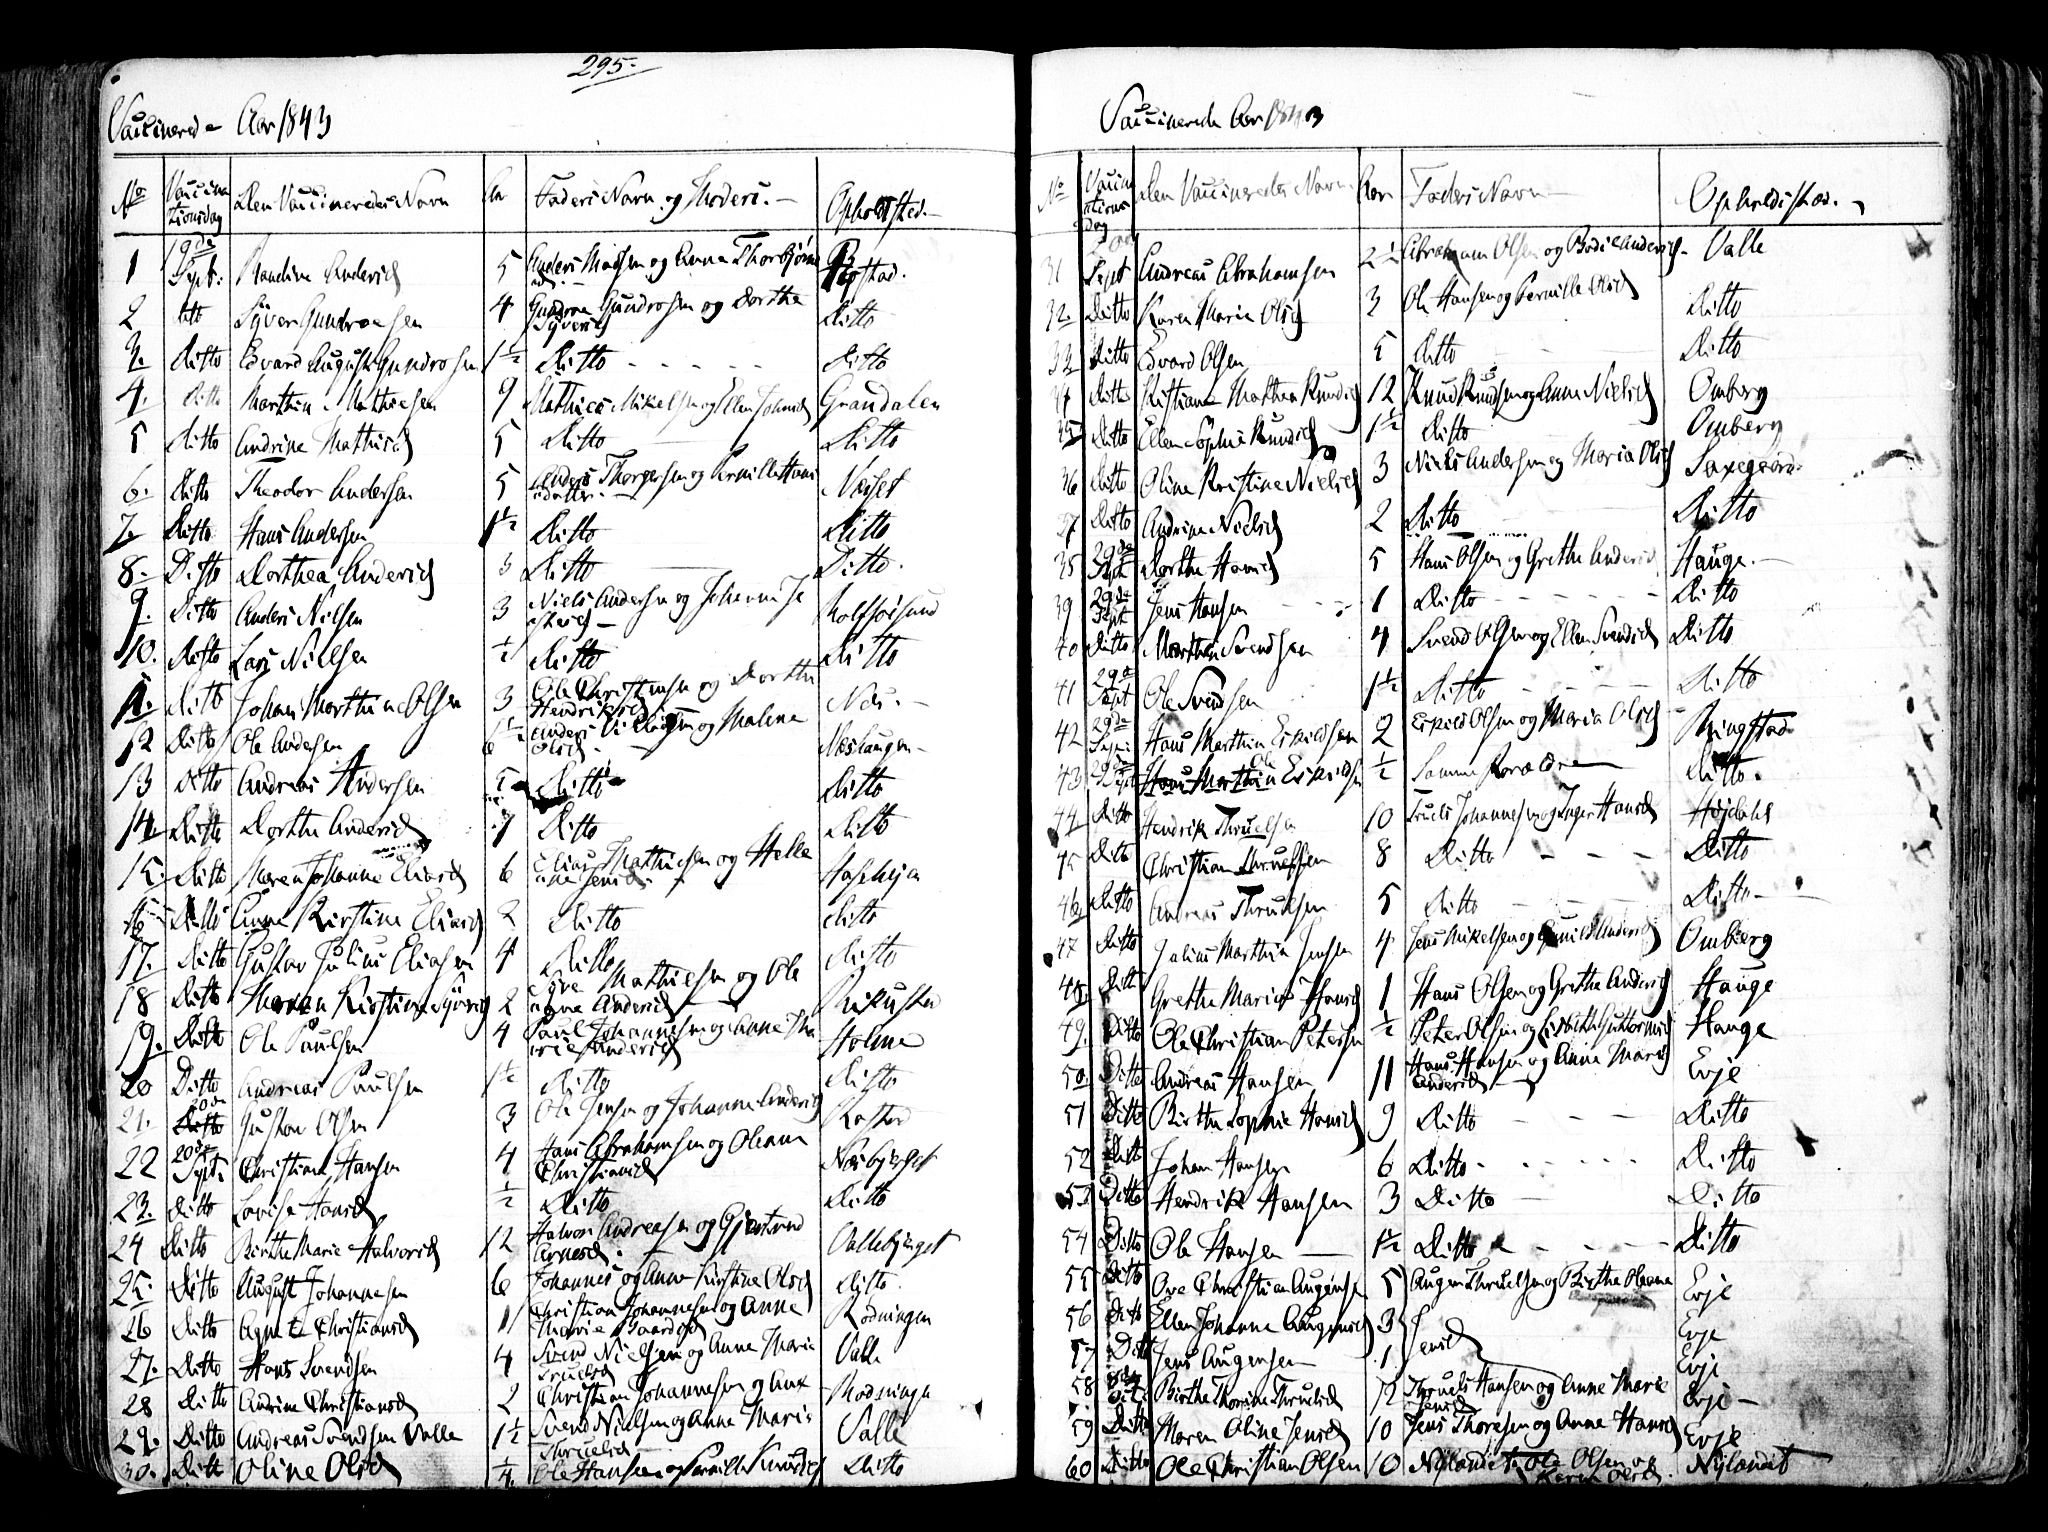 295.
Vaccinered- Aar 1843
No Vaccinationsdag Den Vaccineredes Navn Aar Faders Navn og Moders. Opholdsted.
1 19de Sept: Andersd 5 Anders Madsen og Anna Thorbjørnsd.
2 dito Syver Gundrosen 4 Gundroe Gundrosen og Dorthe Syversd Ditto
3. Ditto Edvard August Gundrosen 1½ Ditto Ditto
4. Ditto Marthin Mathiesen 9 Mathies Mikelsen og Ellen Johnsd Grandalen
5 Ditto Andrine Mathisd 5 Ditto Ditto
6. Ditto Theodor Andersen 5 Anders Thorgersen og Pernille Hansdatter. Næsset
7. Ditto Hans Andersen 1½ Ditto Ditto
8. Ditto Dorthea Andersd 3 Ditto Ditto.
9. Ditto Anders Nilsen 3 Niels Andersen og Johanne Rolfsøisund
10. Ditto Lars Nielsen ½ Ditto Ditto
11. Ditto Johan Marthin Olsen 3 Ole Christensen og Dorthe Hendriksd
12 Ditto Ole Andersen Anders og Malene Olsd Næslangen
13 Ditto Andreas Andersen 5 Ditto Ditto
14. Ditto Dorthe Andersd Ditto Ditto
15. Ditto Maren Johanne Eliasd 6 Elias Mathiesen og Helleane Jensd.
16 Ditto Anne Kirstine Eliasd 2 Ditto Ditto
17. Ditto Gustav Julius Eliasen 4 Ditto Ditto
18 Ditto Maren Kirstine Syversd 2 Syve Mathiesen og Oleane Andersd
19. Ditto Ole Paulsen 4 Paul Johannesen og Anne Marie Andersd Holme
20 Ditto Andreas Paulsen 1½ Ditto Ditto
21. 20de Gustav Olsen 3 Ole Jensen og Johanne Andersd
22 20de Sept: Christian Hansen 4 Hans Abrahamsen og Oleana Christiansd
23. Ditto Lovise Hansd ½ Ditto Ditto
24 Ditto Birthe Marie Halvorsd 12 Halvor Andreasen og Gjertrud Arnesd. Vallebyeget
25. Ditto August Johannesen 6 Johannes og Anne Kirstine Olsd Ditto.
26 Ditto Agnete Christiansd 11 Christian Johannesen og Anne Marie Rødningen
27. Ditto Hans Svendsen 4 Svend Nielsen og Anne Marie Truelsd Valle
28 Ditto Andrine Christiansd 2 Christian Johannesen og Anne
29. Ditto Andreas Svendsen Valle 1½ Svend Nielsen og Anne Marie Thruelsd Valle
30. Ditto Oline Olsd ¼. Ole Hansen og Pernille Knudsd Ditto
Vaccinerede Aar 1843
No Vaccinationsdag Den Vaccineredes Navn. Aar Faders Navn Opholdsted.
31 Sept Andreas Abrahamsen 2½ Abraham Olsen og Bodil Andersd Valle
32. Ditto Karen Maria Olsd 3 Ole Hansen og Pernille Olsd Ditto
33 Ditto Edvard Olsen 5 Ditto Ditto
34 Ditto Kristiane Mathea Knudsd 12 Knud Knudsen og Anne Nielsd Omberg
35. Ditto Ellen Sophie Knudsd 1½ Ditto Omberg
36 Ditto Oline Kristine Nielsd 3 Niels Andersen og Maria Olsd Saxegaard.
37 Ditto Andrine Nielsd 2 Ditto Ditto
29de Sept Dorthe Hansd 5 Hans Olsen og Grethe Andersd Hauge.
39 29de Sept Jens Hansen 1 Ditto Ditto
40 Ditto Marthin Svendsen 4 Svend Olsen og Ellen Svendsd Ditto
41 29de Sept Ole Svendsen 1½ Ditto Ditto
42 29de Sept: Hans Marthin Eskildsen 2 Eskild Olsen og Maria Olsd Ringstad
43 29de Sept Hans Marthin Ole Eskildsen ½ Samme Forældre Ditto.
44 Ditto Hendrik Thruelsen 10 Truels Johannesen og Inger Hansd Højdahl
45 Ditto Christian Thruelsen 8 Ditto Ditto
46 Ditto Andreas Thruelsen 5 Ditto Ditto
47 Ditto Julius Marthin Jensen 4 Jens Mikelsen og Gunild Andersd Omberg
48. Ditto Grethe Marie Hansd 1 Hans Olsen og Grethe Andersd Hauge
49. Ditto Ole Christian Petersen ½ Peter Olsen og Lisbeth Guttormsd Hauge
50. Ditto Andreas Hansen 11 Hans Hansen og Anne Marie Andersd Evje
51 Ditto Birthe Sophie Hansd 9 Ditto Ditto
52 Ditto Johan Hansen 6 Ditto Ditto
53 Ditto Hendrik Hansen 3 Ditto Ditto
54 Ditto Ole Hansen 1½ Ditto Ditto
55 Ditto Ove Christian Augensen 5 Augen Thruelsen og Birthe Oleane Evje
56 Ditto Ellen Johanne Augensd 3 Jensd Evje
57 Ditto Jens Augensen 1 Evje
58 Ditto Birthe Thorine Thruelsd Thruels Hansen og Anne Marie Jensd Evje
59 Ditto Maren Oline Jensd 10 Jens Thoresen og Anne Hansd Evje
60 Ditto Ole Christian Olsen 10 Nylandet Ole Olsen og Karen Olsd. Nylandet